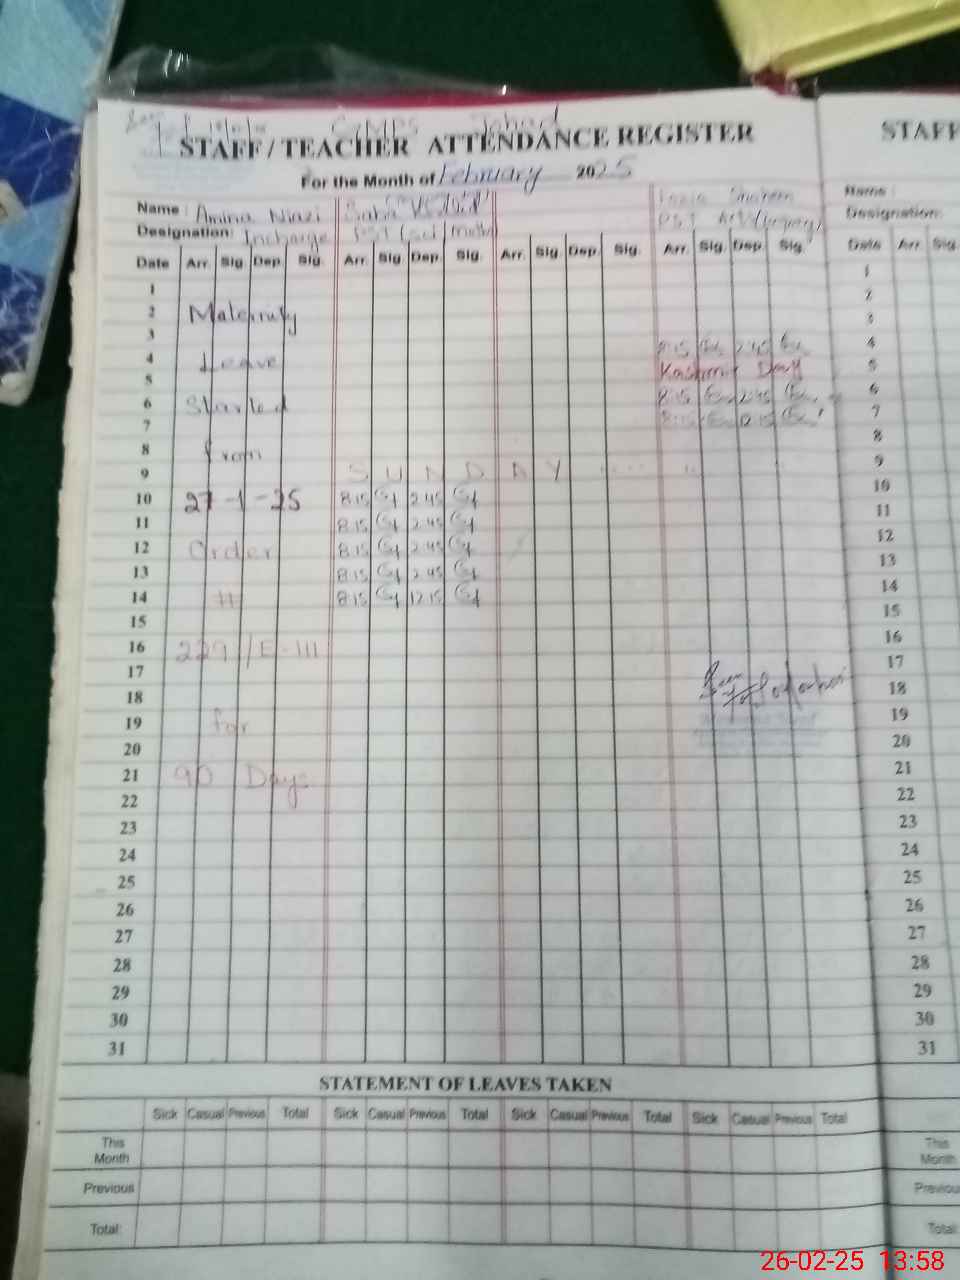 GGMPS Jahed
STAFF / TEACHER ATTENDANCE REGISTER STAFF
For the Month of February 2025
Name : Amina Niazi Saba Fazia Shaheen Name :
Designation: Incharge PST (Sci Math) PST Designation:
Date Arr. Sig. Dep. Sig. Arr. Sig. Dep. Sig. Arr. Sig. Dep. Sig. Arr. Sig. Dep. Sig. Date Arr. Sig.
1 1
2 Maternity 2
3 3
4 Leave 8:15 2:45 4
5 Kashmir Day 5
6 Started 8:15 2:45 6
7 8:15 12:15 7
8 from 8
9 S U N D A Y 9
10 27-1-25 8:15 2:45 10
11 8:15 2:45 11
12 Order 8:15 2:45 12
13 8:15 2:45 13
14 # 8:15 12:15 14
15 15
16 229/E-III 16
17 17
18 18
19 for 19
20 20
21 90 Days 21
22 22
23 23
24 24
25 25
26 26
27 27
28 28
29 29
30 30
31 31
STATEMENT OF LEAVES TAKEN
Sick Casual Previous Total Sick Casual Previous Total Sick Casual Previous Total Sick Casual Previous Total
This Month This Month
Previous Previou
Total: Total:
26-02-25 13:58